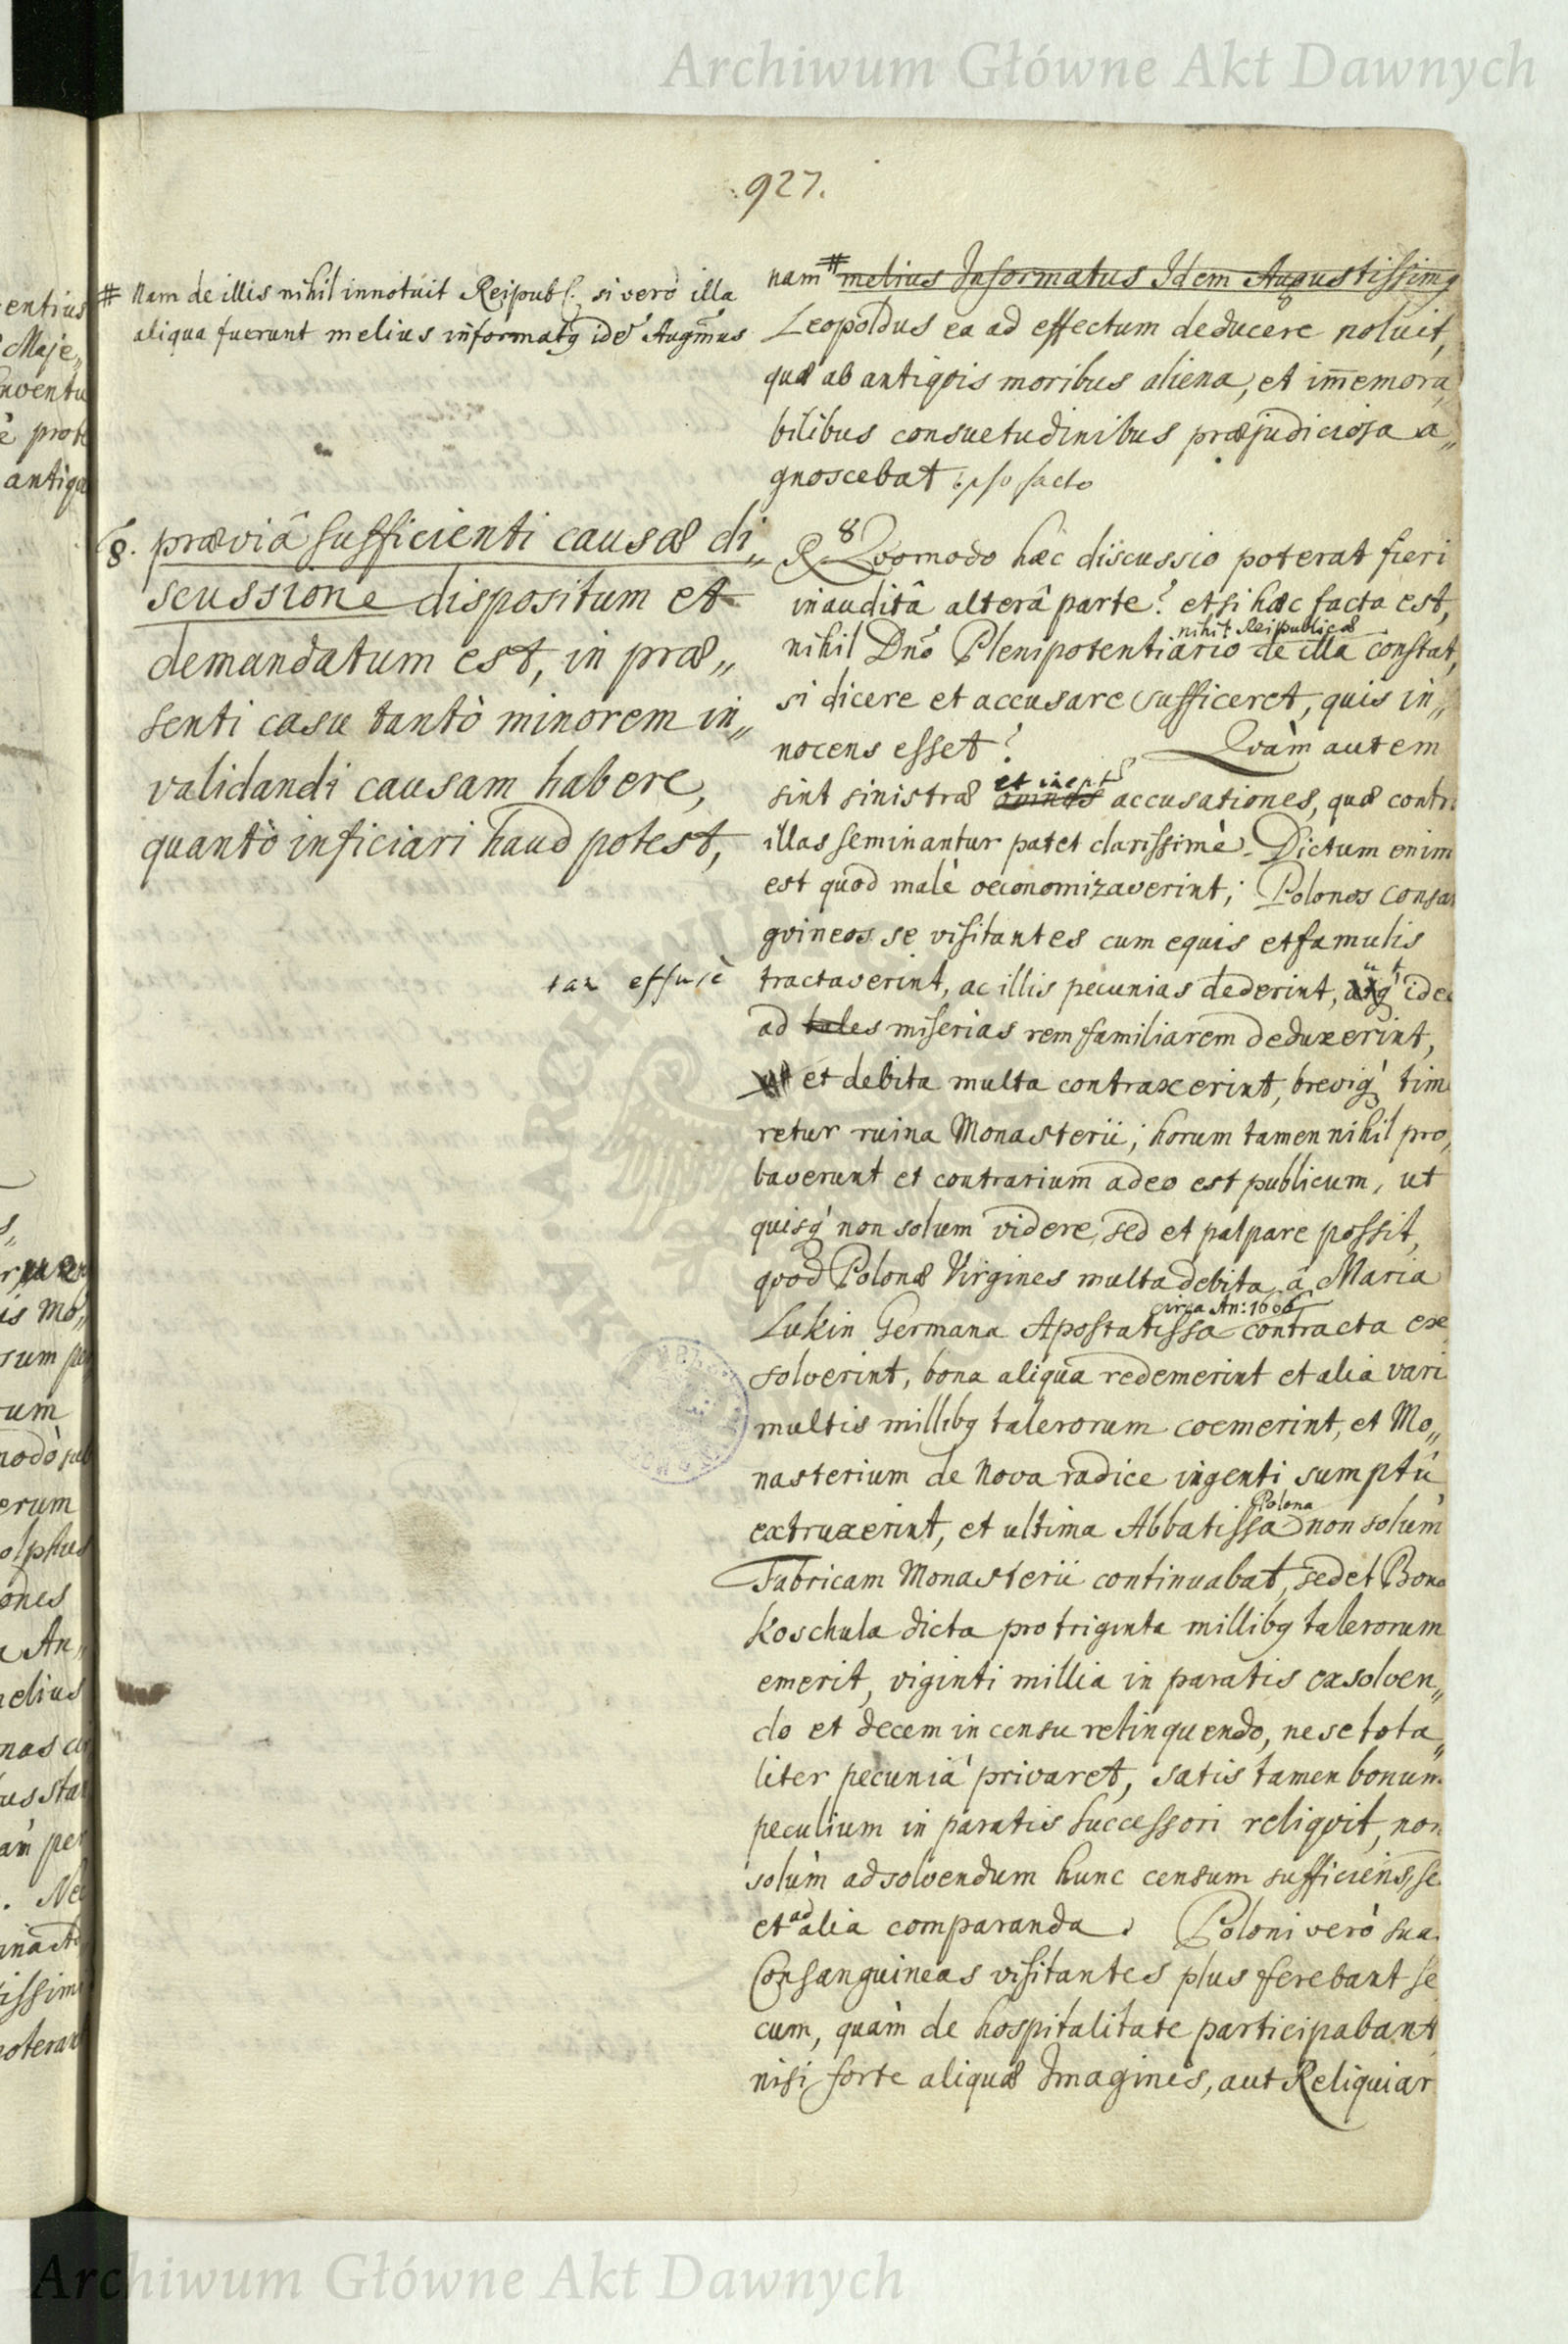 Archiwum Główne Akt Dawnych
927.
# Nam de illis nihil innotuit Reipubl: si vero illa
aliqua fuerunt melius informatq ide Augmus
8. præviâ sufficienti causæ di,,
scussione dispositum et
demandatum est, in præ,,
senti casu tantò minorem in,,
validandi causam habere,
quantò inficiari haud potest,
tan effusè
nam # melius Informatus Idem Augustissimq
Leopoldus ea ad effectum deducere noluit,
quæ ab antiqvis moribus aliena, et im̄emora,,
bilibus consuetudinibus præjudiciosa a,,
gnoscebat ipso facto
8
R Qvomodo hæc discussio poterat fieri
inauditâ alterâ parte? etsi hæc facta est,
nihil Reipublicæ
nihil Dnō Plenipotentiario de illa constat,
si dicere et accusare sufficeret, quis in,,
nocens esset? Qvàm autem
et inept
sint sinistræ omnes accusationes, quæ contr
illas seminantur patet clarissimè. Dictum enim
est quod malè oeconomizaverint; Polonos consan
gvineos se visitantes cum equis et famulis
ut
tractaverint, ac illis pecunias dederint, atq' ide
ad tales miserias rem familiarem deduxerint,
ut et debita multa contraxerint, breviq' tim
retur ruina Monasterii; horum tamen nihil pro,,
baverunt et contrarium adeo est publicum, ut
quisq' non solum videre, sed et palpare possit,
qvod Polonæ Virgines multa debita â Maria
circa An: 1606
Lukin Germana Apostatissa contracta ex
solverint, bona aliqua redemerint et alia vari
multis millibq talerorum coemerint, et Mo,,
nasterium de nova radice ingenti sumptú
Polona
extruxerint, et ultima Abbatissa non solùm
Fabricam Monasterii continuabat, sed et Bona
Koschula dicta pro triginta millibq talerorum
emerit, viginti millia in paratis exsolven,,
do et decem in censu relinquendo, ne se tota,,
liter pecuniâ privaret, satis tamen bonum
peculium in paratis successori reliqvit, non
solùm ad solvendum hunc censum sufficiens, se
ad
et alia comparanda. Poloni verò sua
Consanguineas visitantes plus ferebant se
cum, quàm de hospitalitate participabant,
nisi forte aliquæ Imagines, aut Reliquiar
Archiwum Główne Akt Dawnych